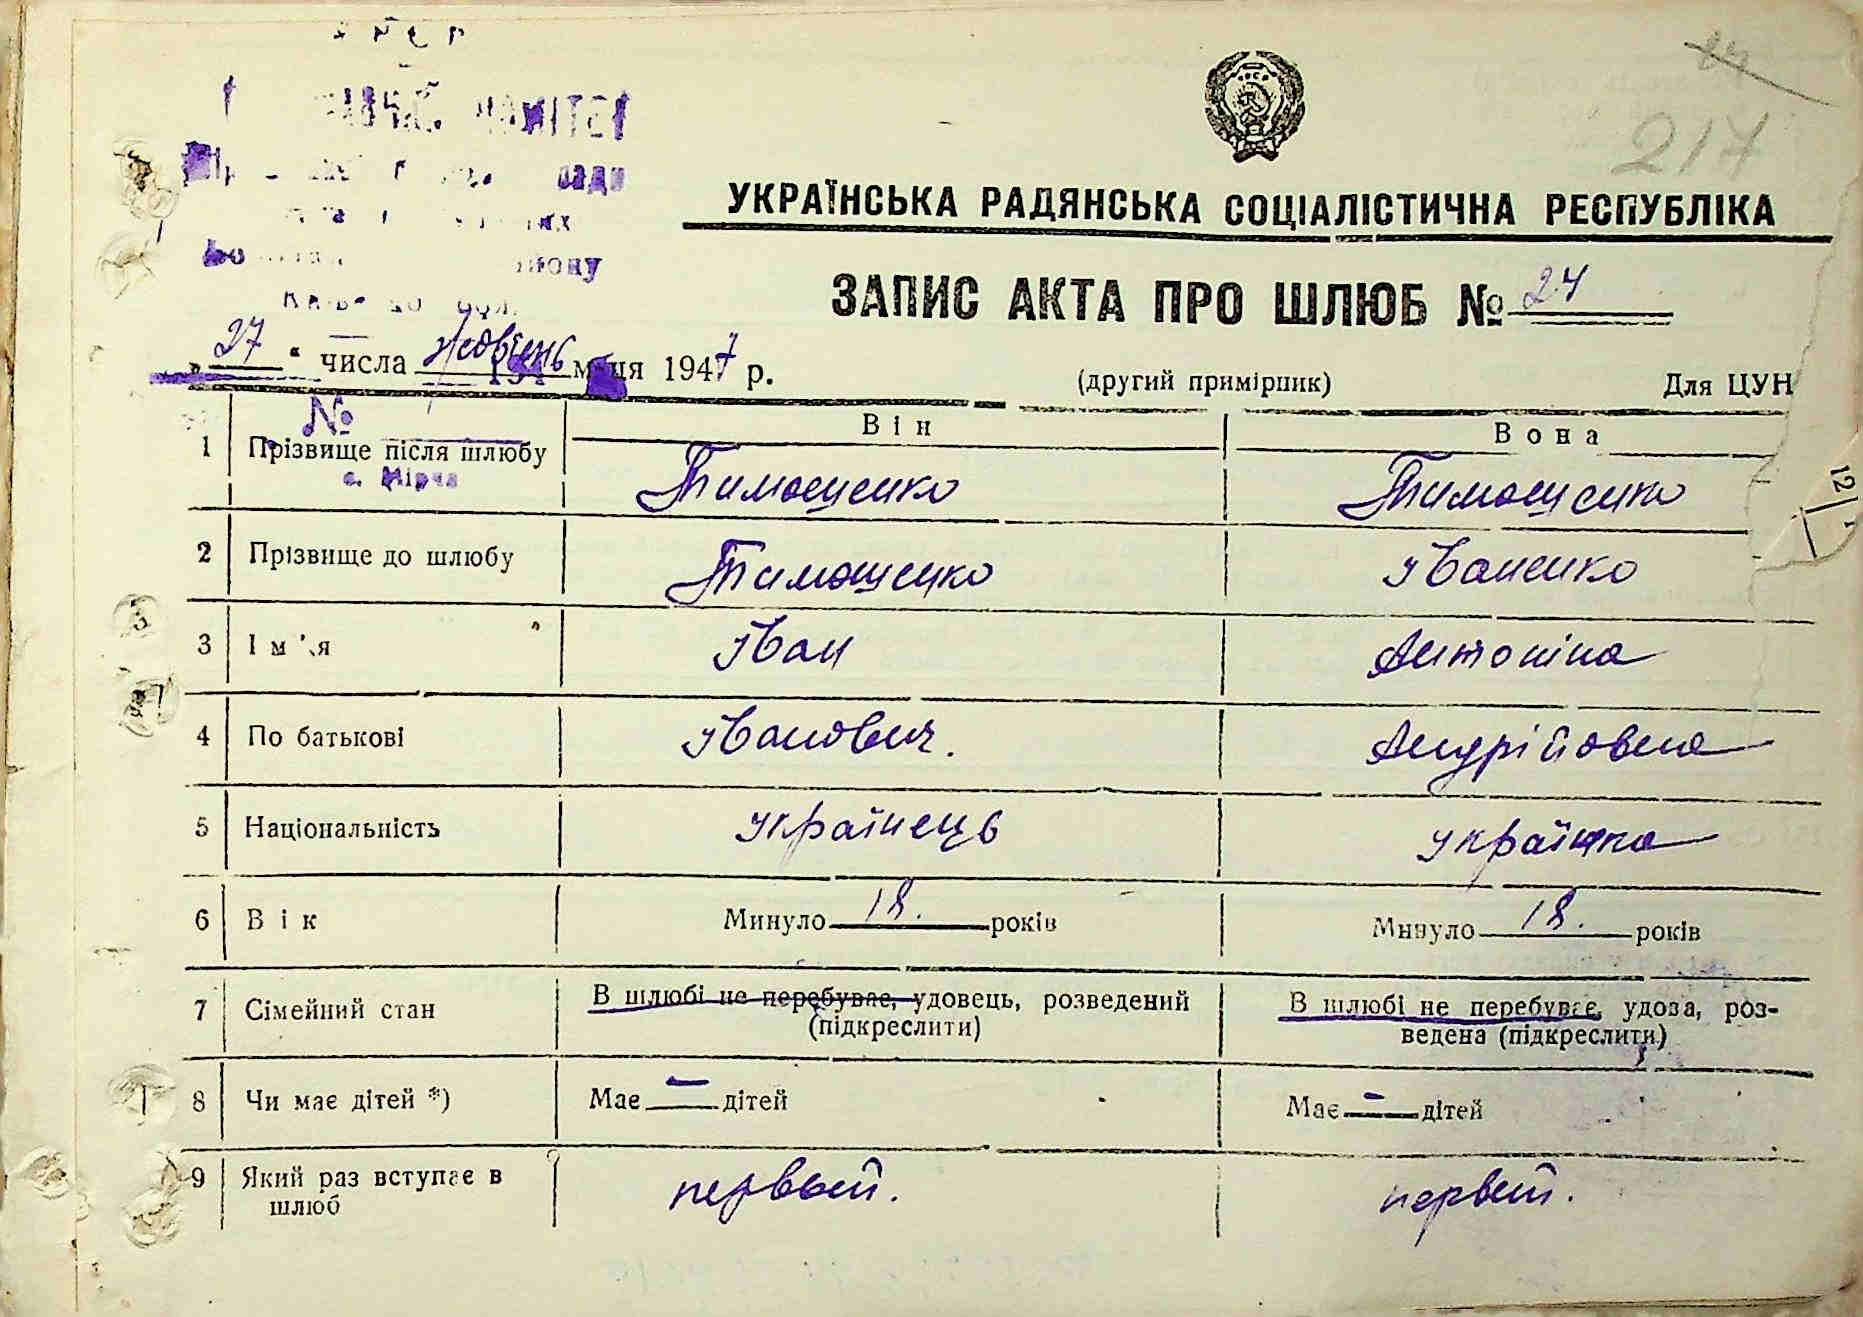 217
УКРАЇНСЬКА РАДЯНСЬКА СОЦІАЛІСТИЧНА РЕСПУБЛІКА
ЗАПИС АКТА ПРО ШЛЮБ № 24
„ 27 “ числа жовтень м-ця 1947 р.
(другий примірник) Для ЦУН
№
с. Мірча
Він Вона
1 Прізвище після шлюбу Тимощенко Тимощенко
2 Прізвище до шлюбу Тимощенко Іваненко
3 Ім'я Іван Антоніна
4 По батькові Іванович. Андрійовна
5 Національність Українець Українка
6 Вік Минуло 18. років Минуло 18. років
7 Сімейний стан В шлюбі не перебуває, удовець, розведений В шлюбі не перебуває, удова, роз-
(підкреслити) ведена (підкреслити)
8 Чи має дітей *) Має — дітей Має — дітей
9 Який раз вступає в первый. первый.
шлюб
12